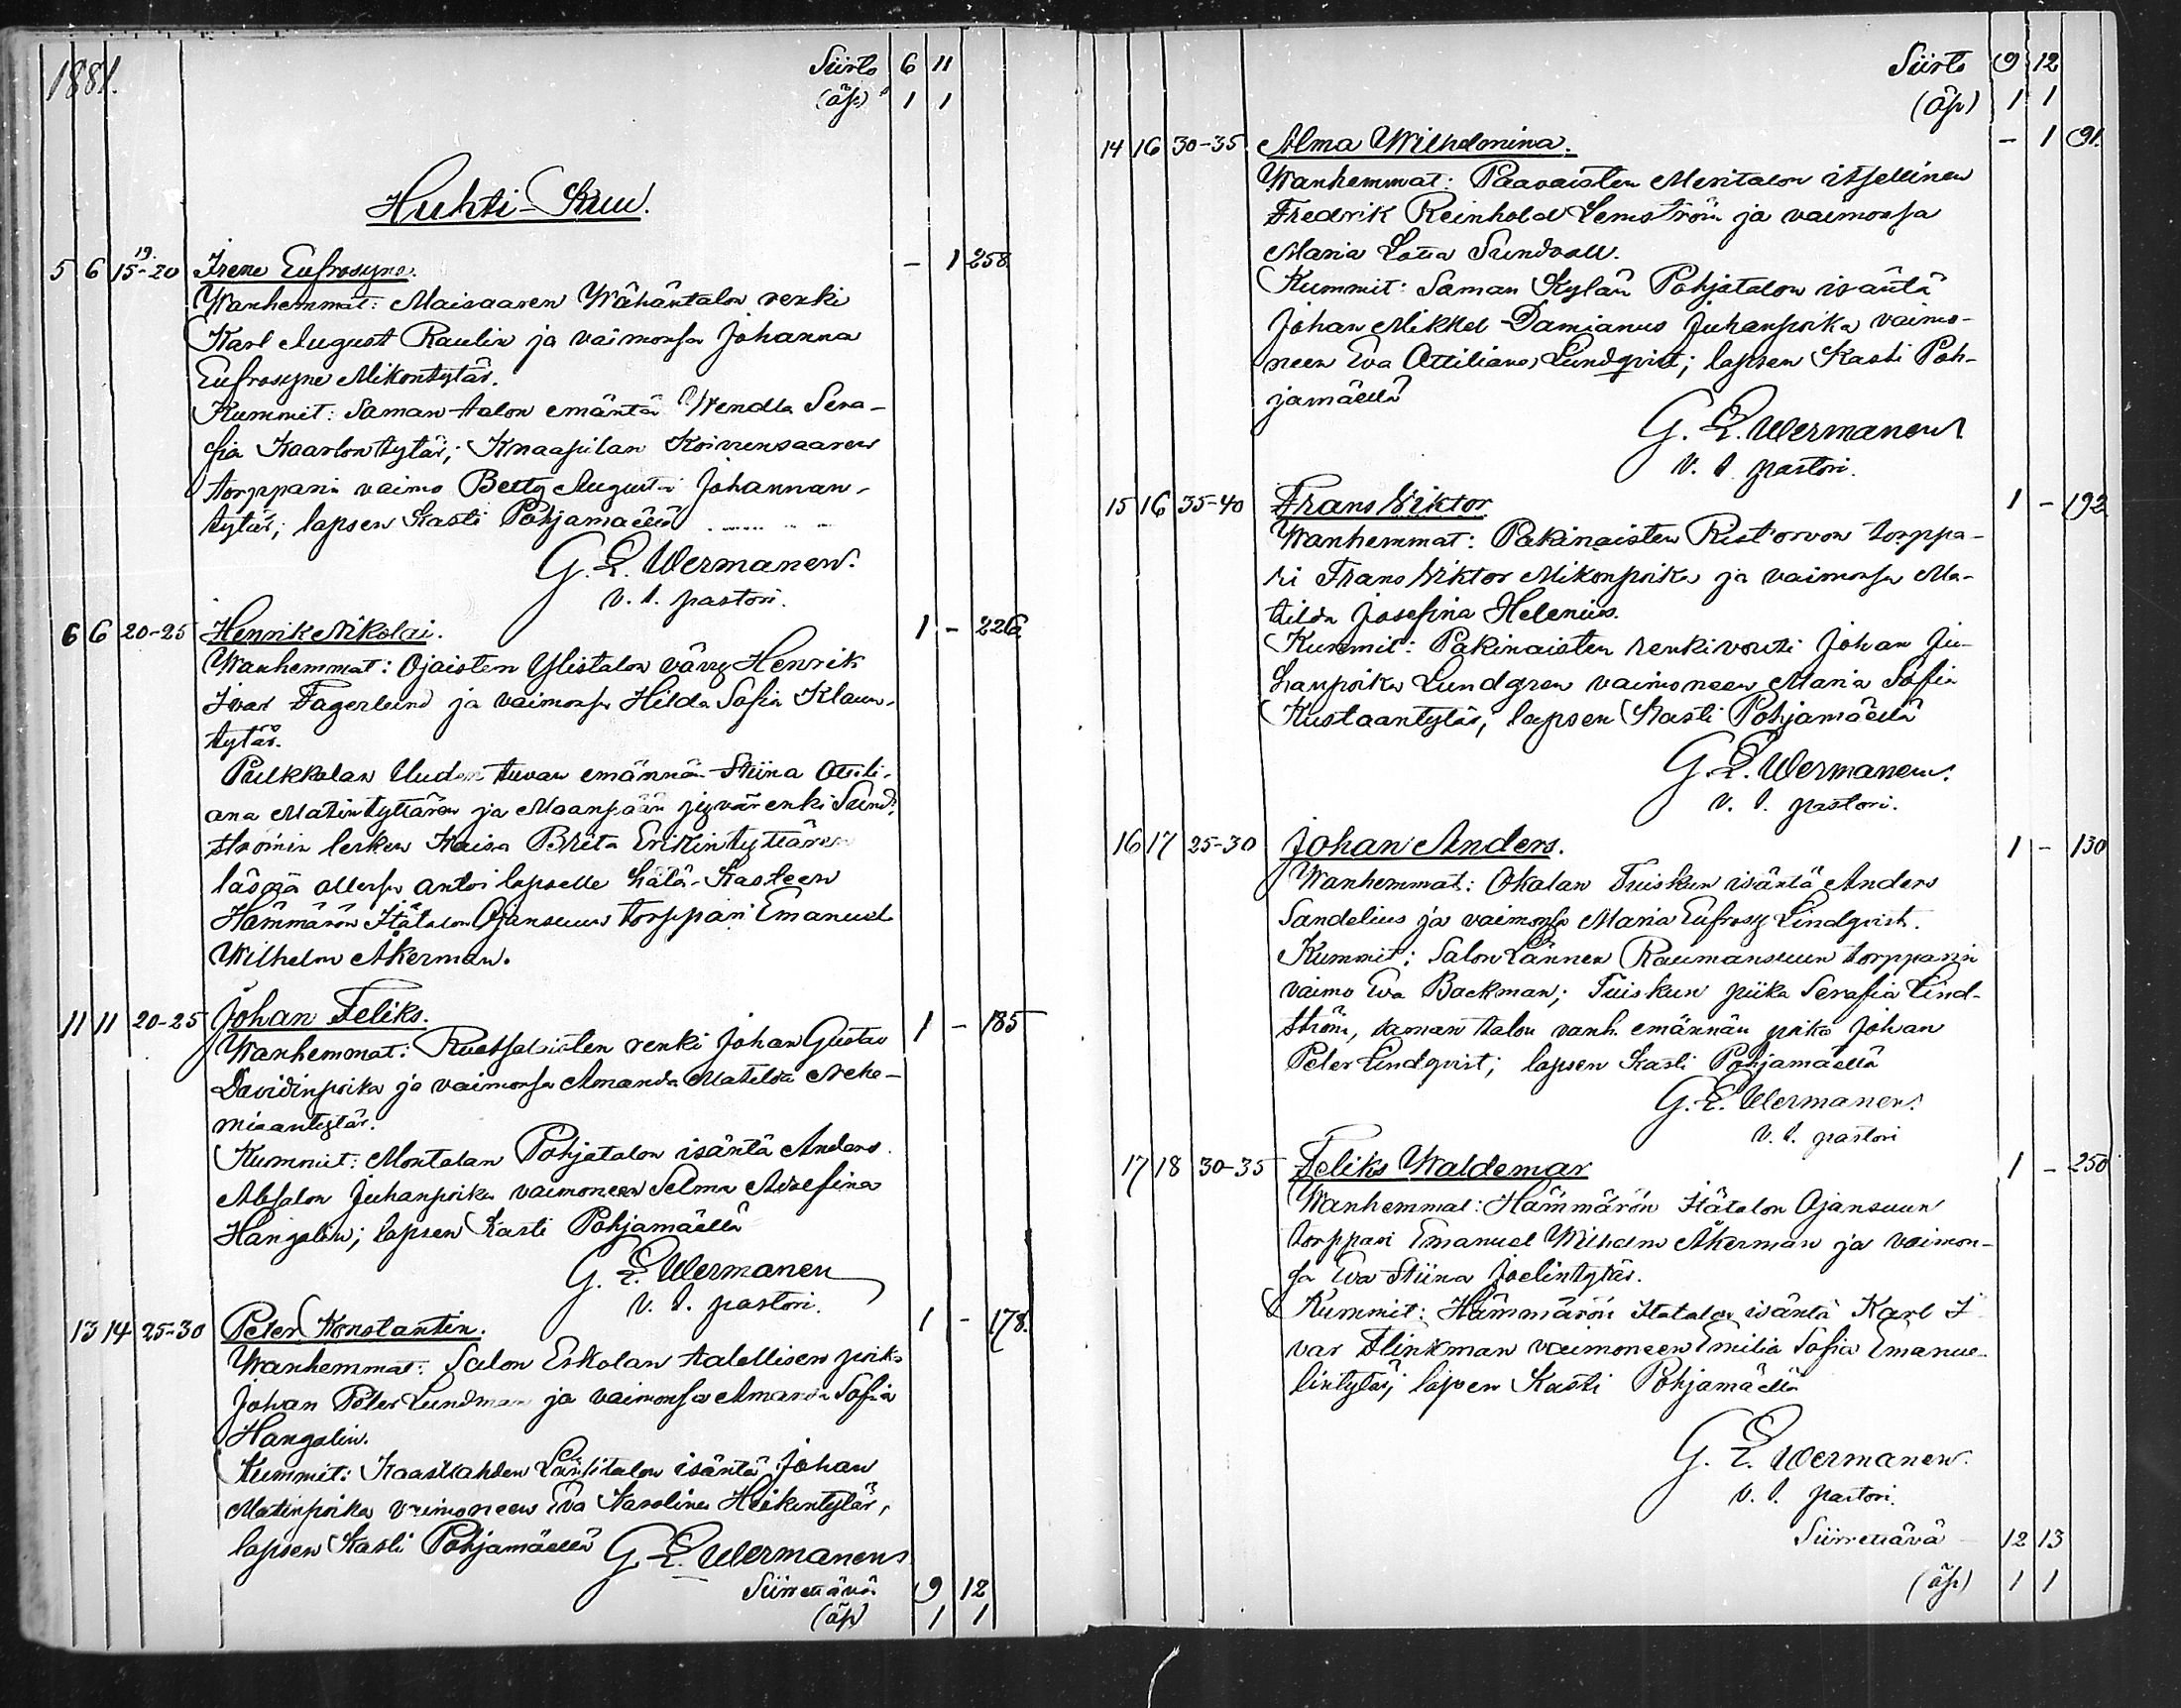 1881.
Siirto 6 11
(äp) 1 1
Huhti-Kuu.
5 6 15-20 19. Irene Eufrosyne. - 1 258.
Wanhemmat: Maisaaren Wähäntalon renki
Karl August Raulin ja vaimonsa Johanna
Eufrosyne Mikontytär.
Kummit: Saman talon emäntä Wendla Sera-
fia Kaarlontytär; Knaapilan Koivunsaaren
torpparin vaimo Betty Augusta Johannan-
tytär; lapsen Kasti Pohjamäellä
G. E. Wermanen.
v. t. pastori.
6 6 20-25 Henrik Nikolai. 1 - 226.
Wanhemmat: Ojaisten Ylistalon vävy Henrik
Ivar Fagerlund ja vaimonsa Hilda Sofia Klaun-
tytär.
Pulkkalan Uuden tuvan emännän Stiina Otili-
ana Matintyttären ja Maanpään jyvärenki Sund-
strömin lesken Kaisa Brita Erikintyttären
läsnä ollessa antoi lapselle hätä-Kasteen
Hämmärön Itätalon Ojansuun torppari Emanuel
Wilhelm Åkerman.
11 11 20-25 Johan Feliks. 1 - 185
Wanhemmat: Ruotsalaisten renki Johan Gustav
Davidinpoika ja vaimonsa Amanda Matilda Nehe-
miaantytär.
Kummit: Montalan Pohjatalon isäntä Anders
Absalon Juhanpoika vaimoneen Selma Adolfina
Hangelin; lapsen Kasti Pohjamäellä
G. E. Wermanen
v. t. pastori.
13 14 25-30 Peter Konstantin. 1 - 178.
Wanhemmat: Salon Erkolan talollisen poika
Johan Peter Lundman ja vaimonsa Amanda Sofia
Hangelin.
Kummit: Kaaslahden Länsitalon isäntä Johan
Matinpoika vaimoneen Eva Karolina Heikintytär,
lapsen Kasti Pohjamäellä G. E. Wermanen
Siirrettävä 9 12
(äp) 1 1
Siirto 9 12
(äp) 1 1
14 16 30-35 Alma Wilhelmina. - 1 91.
Wanhemmat: Paavaisten Meritalon itsellinen
Fredrik Reinhold Lemström ja vaimonsa
Maria Lovisa Sundvall.
Kummit: Saman Kylän Pohjatalon isäntä
Johan Mikkel Damianus Juhanpoika vaimo-
neen Eva Ottiliana Lundqvist; lapsen Kasti Poh-
jamäellä
G. E. Wermanen
v. t. pastori.
15 16 35-40 Frans Viktor 1 - 192
Wanhemmat: Pakinaisten Ristorvon torppa-
ri Frans Viktor Mikonpoika ja vaimonsa Ma-
tilda Josefina Helenius.
Kummit: Pakinaisten renkivouti Johan Ju-
hanpoika Lundgren vaimoneen Maria Sofia
Kustaantytär; lapsen Kasti Pohjamäellä
G. E. Wermanen.
v. t. pastori.
16 17 25-30 Johan Anders. 1 - 130
Wanhemmat: Okalan Tuiskun isäntä Anders
Sandelius ja vaimonsa Maria Eufrosy Lindqvist.
Kummit: Salon Lännen Raumansuun torpparin
vaimo Eva Backman; Tuiskun piika Serafia Lind-
ström, saman talon vanh. emännän poika Johan
Peter Lindqvist; lapsen Kasti Pohjamäellä
G. E. Wermanen.
v. t. pastori
17 18 30-35 Feliks Waldemar 1 - 250
Wanhemmat: Hämmärön Itätalon Ojansuun
torppari Emanuel Wilhelm Åkerman ja vaimon-
sa Eva Stiina Joelintytär.
Kummit: Hämmärön Itätalon isäntä Karl I-
var Flinkman vaimoneen Emilia Sofia Emanue-
lintytär; lapsen Kasti Pohjamäellä
G. E. Wermanen.
v. t. pastori.
Siirrettävä 12 13
(äp) 1 1